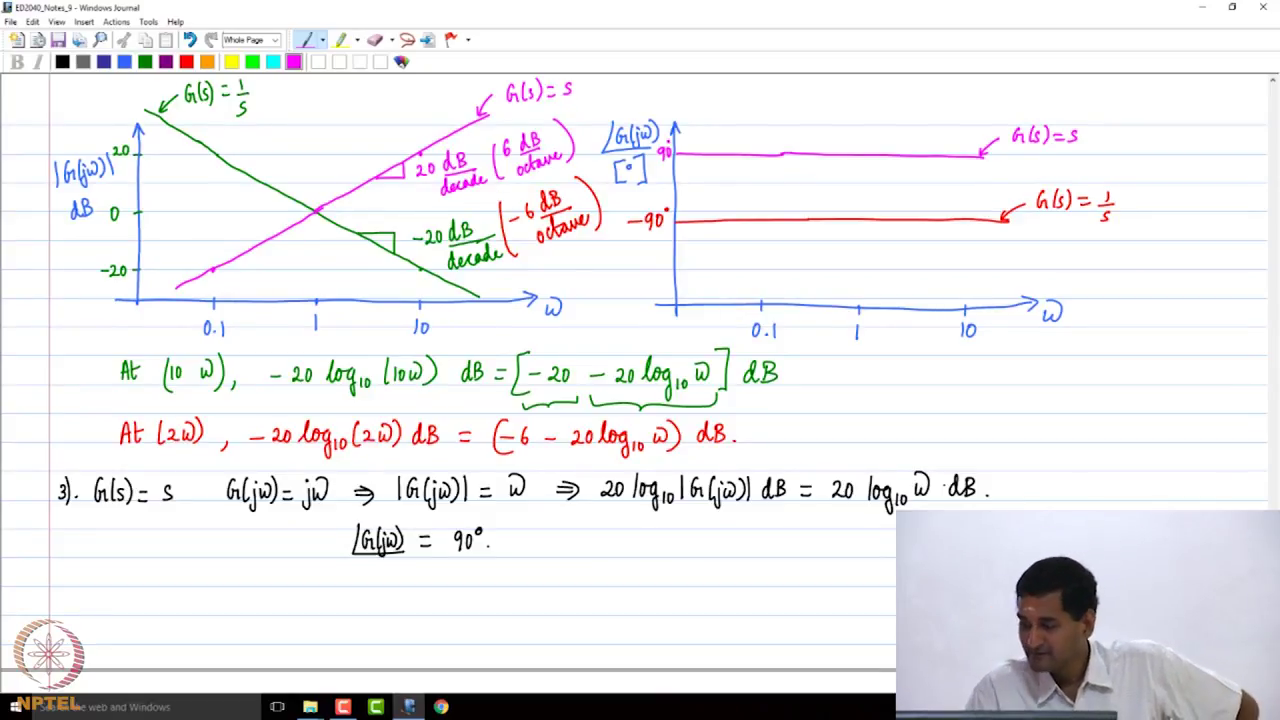 ED2040_Notes_9 - Windows Journal
File Edit View Insert Actions Tools Help
Whole Page
B I
G(s) = 1/s
G(s) = s
|G(jω)| dB
20
0
-20
20 dB/decade (6 dB/octave)
-20 dB/decade (-6 dB/octave)
0.1 1 10 ω
∠G(jω) [°]
90°
-90°
G(s) = s
G(s) = 1/s
0.1 1 10 ω
At (10 ω), -20 log₁₀ (10ω) dB = [-20 - 20 log₁₀ ω] dB
At (2ω), -20 log₁₀ (2ω) dB = (-6 - 20 log₁₀ ω) dB.
3). G(s) = s G(jω) = jω ⇒ |G(jω)| = ω ⇒ 20 log₁₀ |G(jω)| dB = 20 log₁₀ ω · dB.
∠G(jω) = 90°.
NPTEL
Search the web and Windows